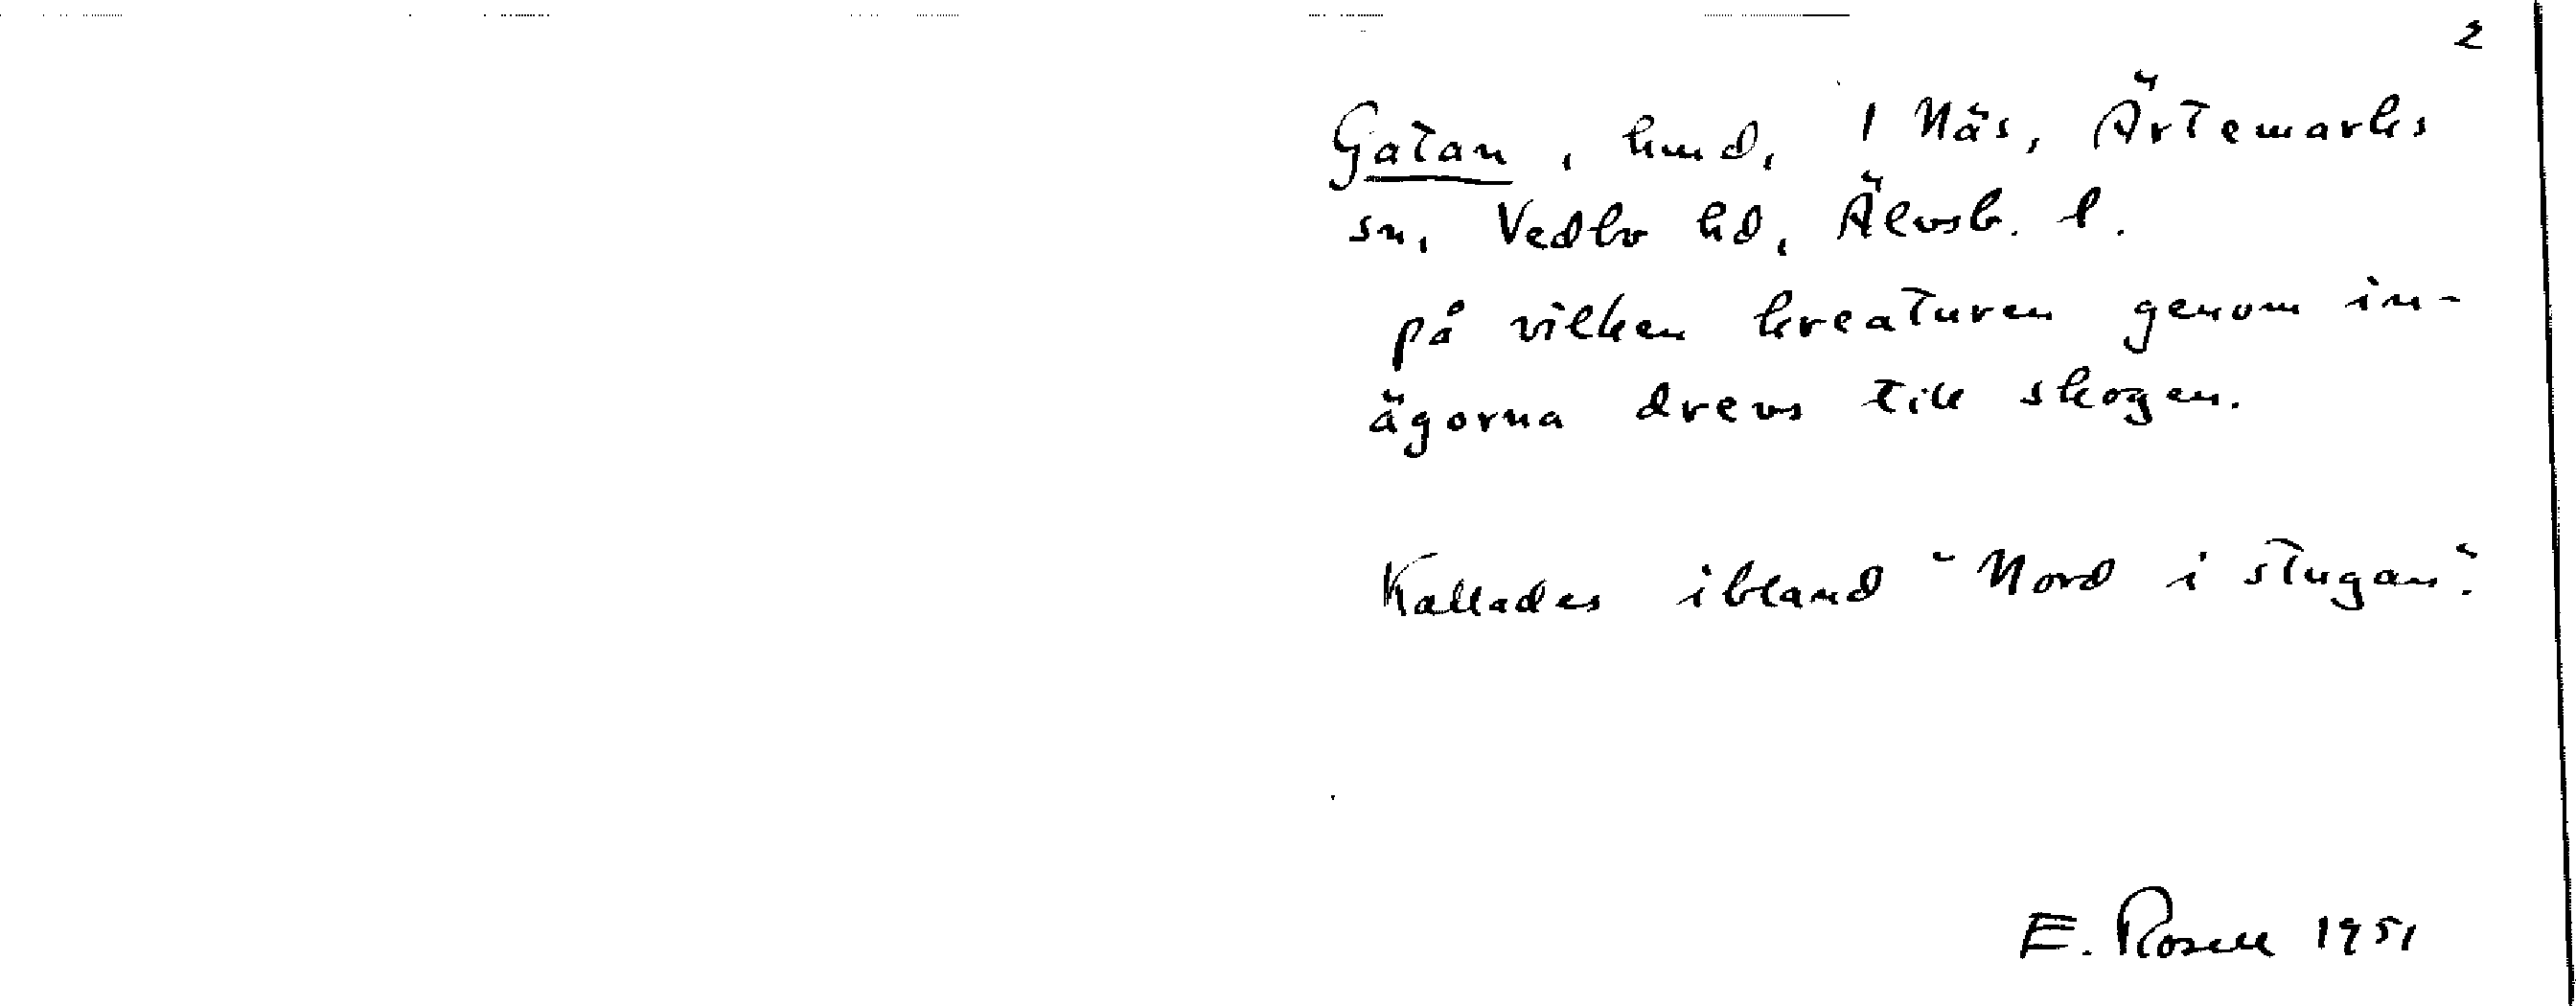 2
Gatan, hmd, 1 Näs, Ärtemarks
sn, Vedbo hd, Älvsb. l.
på vilken kreaturen genom in-
ägorna drevs till skogen.
Kallades ibland "Nord i stugan".
E. Rosell 1951